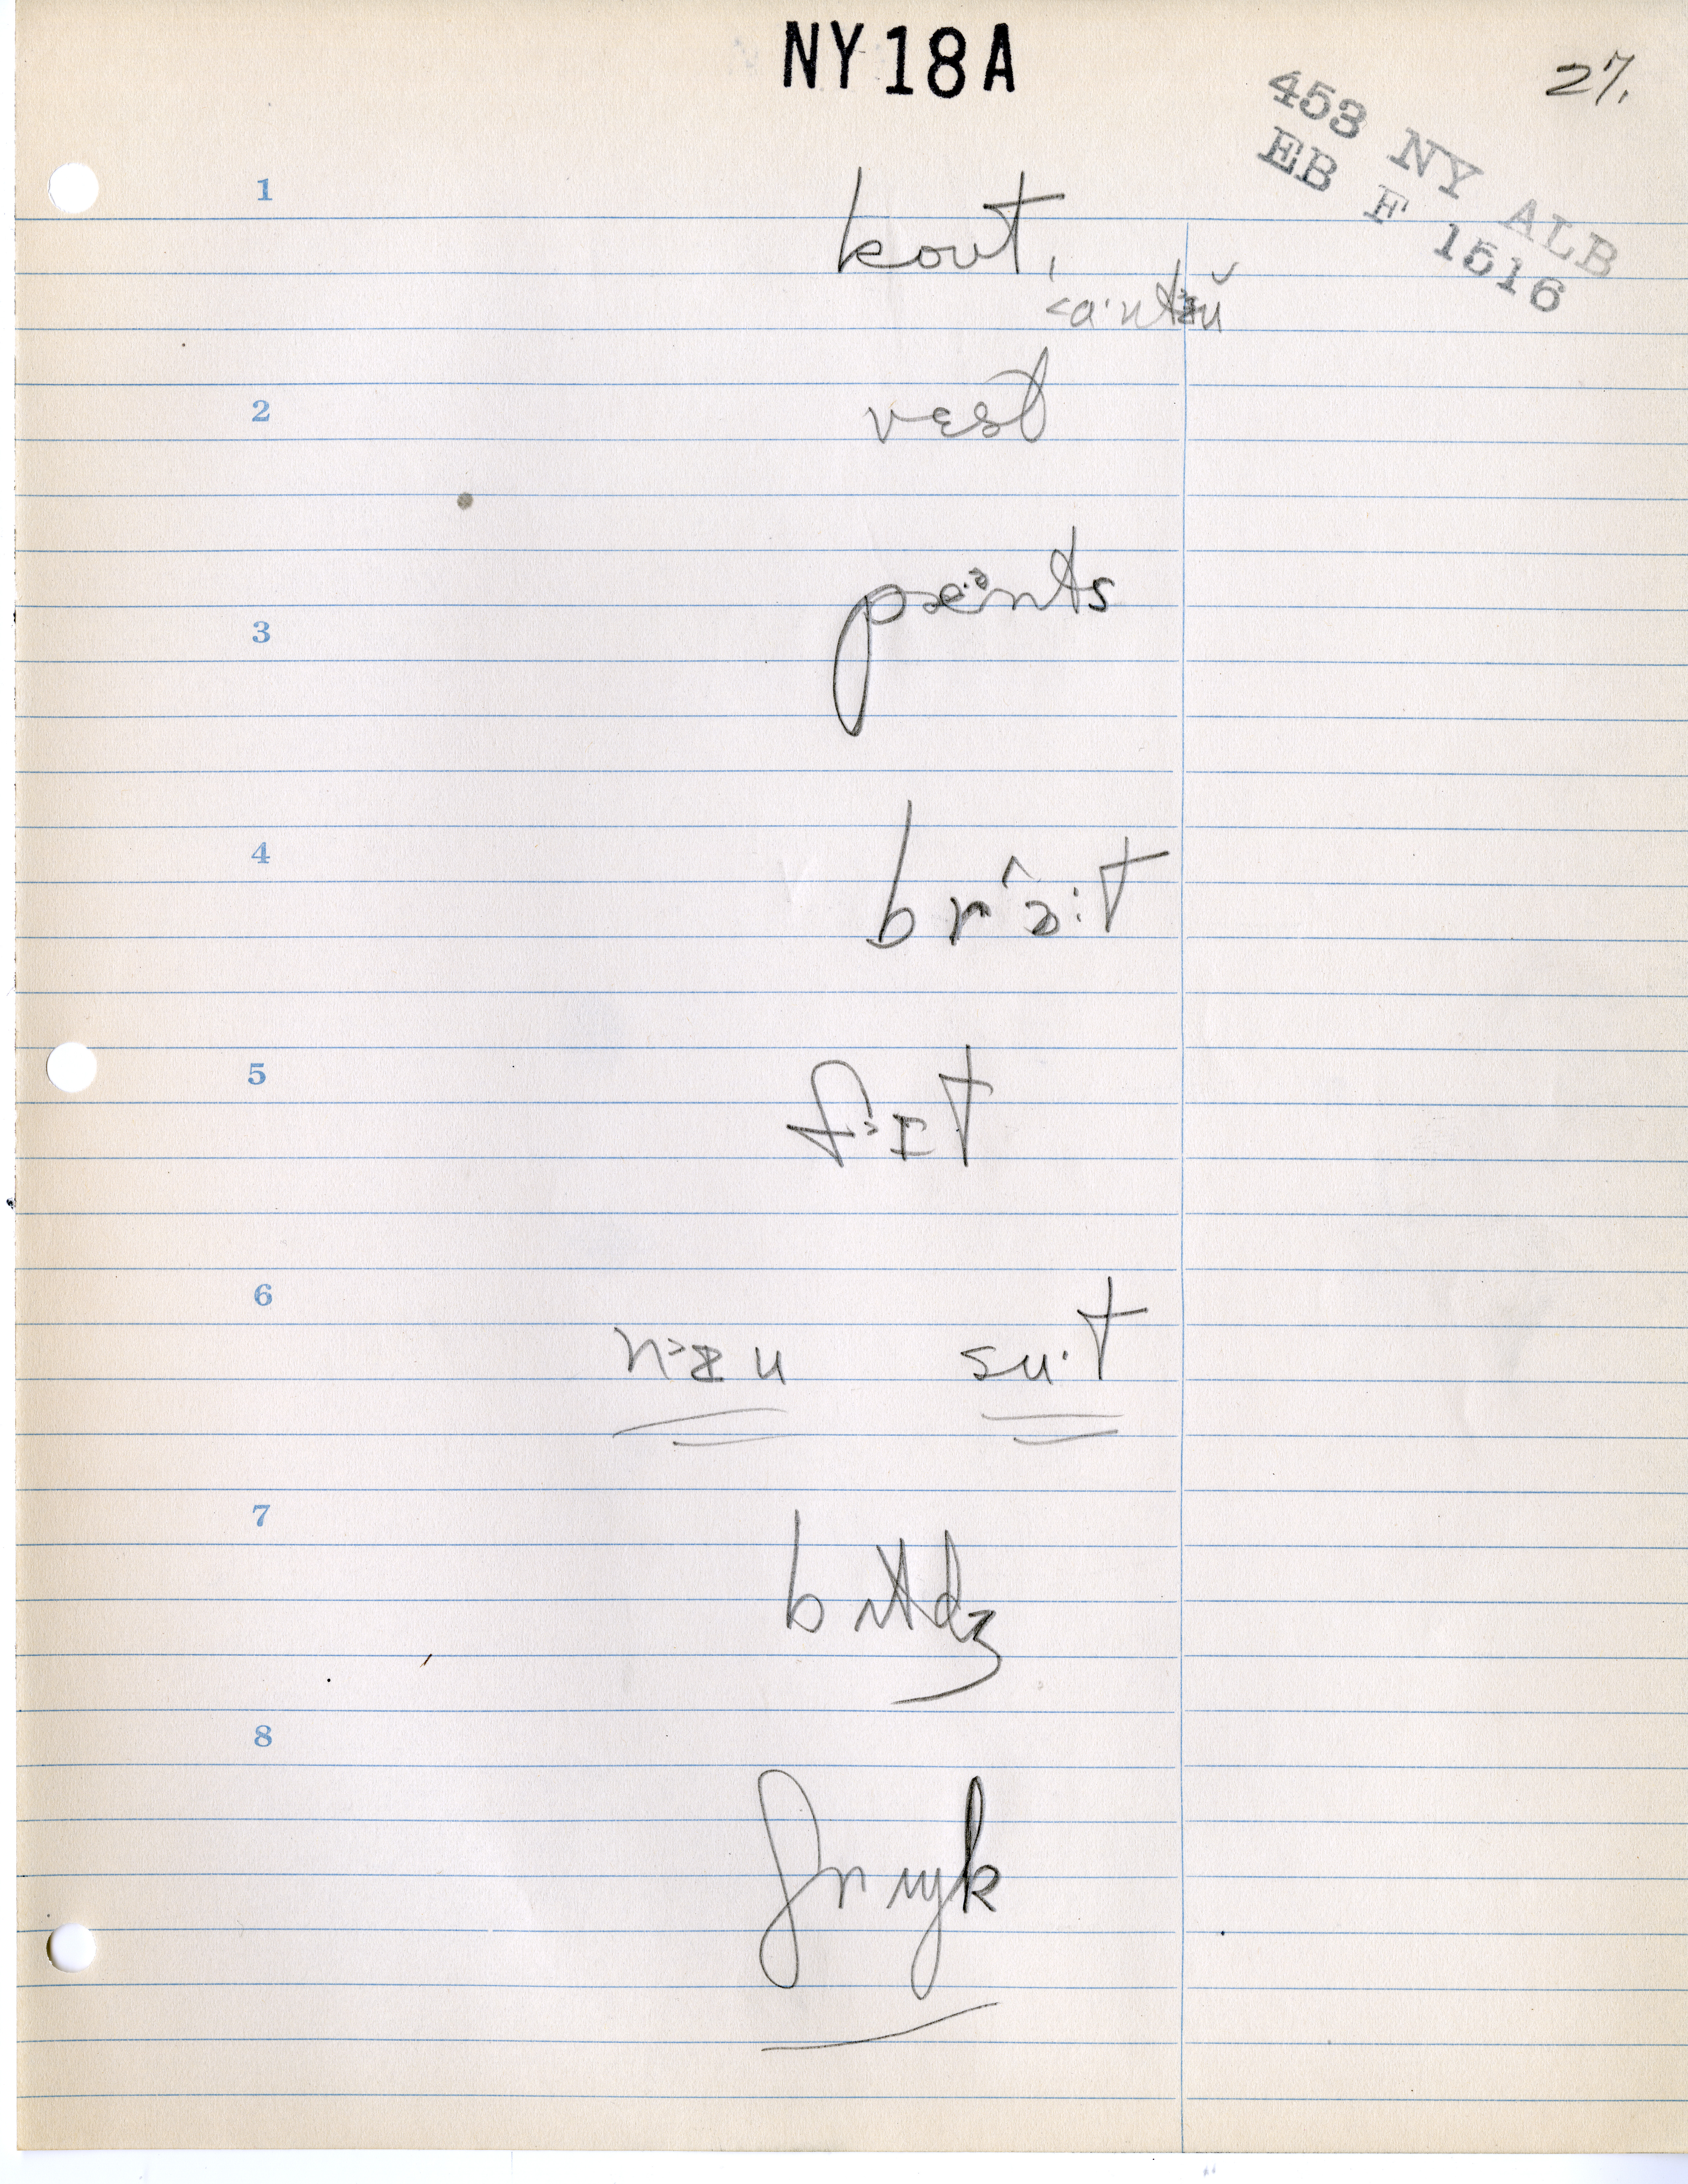 NY18A
27.
453 NY ALB
EB F 1516
1
kout,
2
vɛst
3
pæ·ᵊnts
4
brɔ̂:t
5
f˃ɪt
6
n˃ʉu su·t
7
8
ʃrɪŋk